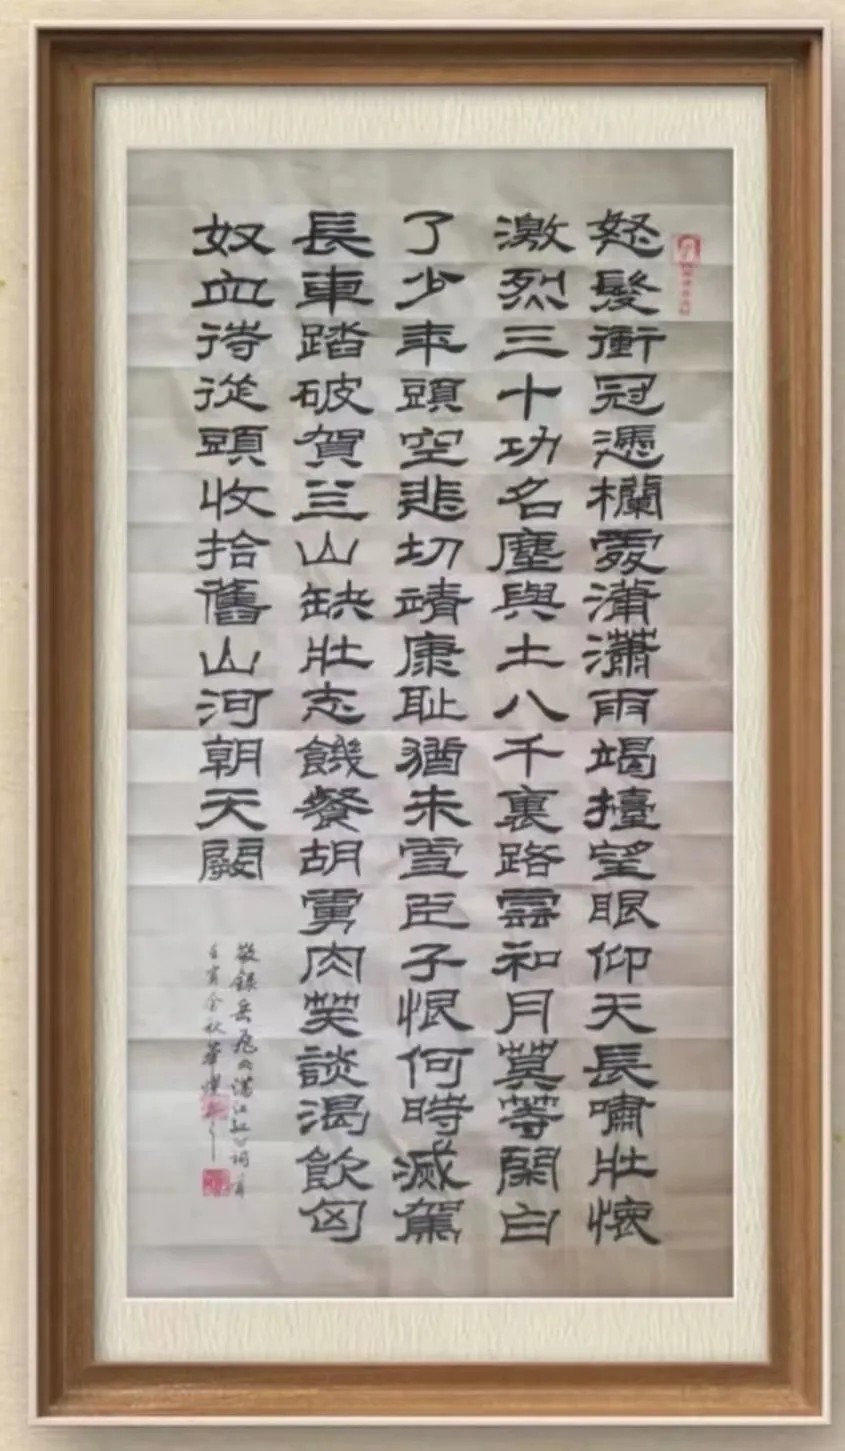 怒髮衝冠憑欄處瀟瀟雨竭擡望眼仰天長嘯壯懷
激烈三十功名塵與土八千裏路雲和月莫等閑白
了少年頭空悲切靖康耻猶未雪臣子恨何時滅駕
長車踏破賀兰山缺壯志饑餐胡虜肉笑談渴飲匈
奴血待從頭收拾舊山河朝天闕
敬錄岳飛《滿江紅》詞一首
壬寅金秋華